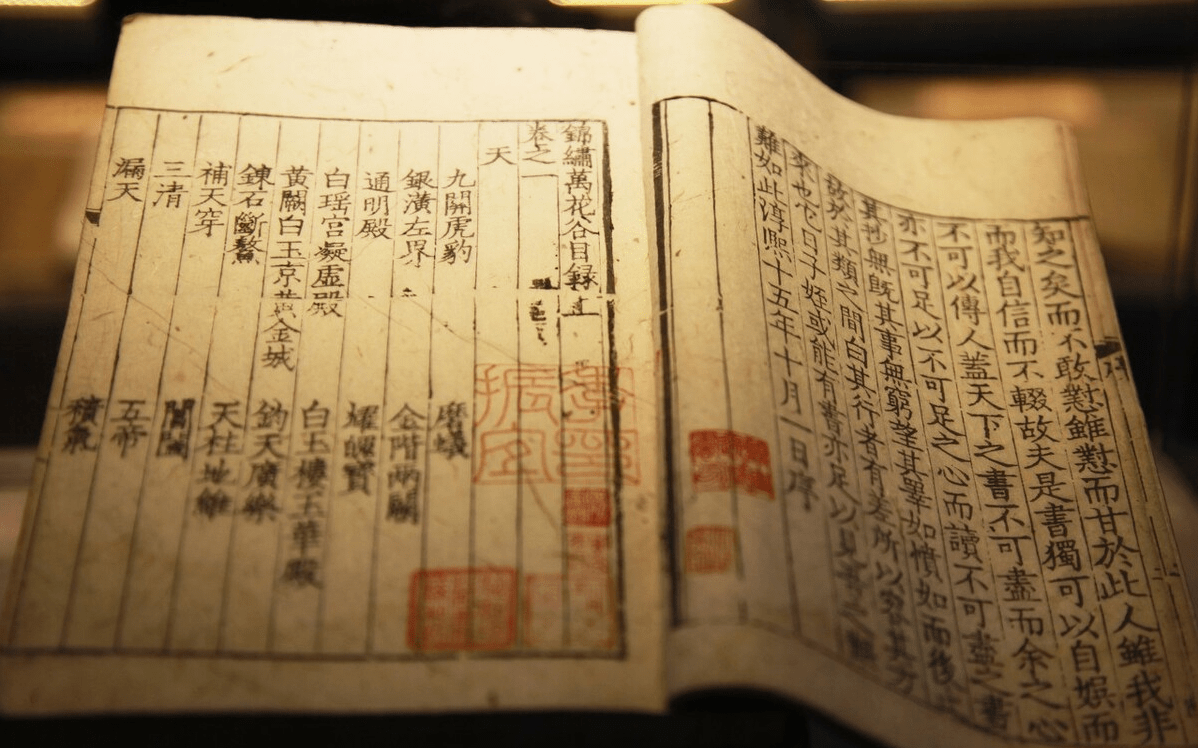 知之矣而不敢懟雖懟而甘於此人雖我非
而我自信而不輟故夫是書獨可以自娛而
不可以傳人蓋天下之書不可盡而余之心
亦不可足以不可足之心而讀不可盡之書
其抄無既其事無窮望其畢如憤如而後止
故於其類之間白其行者有差所以容其方
來也它日子姪或能有書亦足以見書之難
難如此淳熙十五年十月一日序
序
錦繡萬花谷目錄
卷之一
天
九關虎豹 磨蟻
銀潢左界 金階兩闕
通明殿 耀魄寶
白瑤宮凝虛殿 白玉樓玉華殿
黃闕白玉京黃金城 鈞天廣樂
鍊石斷鰲 天柱地維
補天穿 閶闔
三清 五帝
漏天 積氣